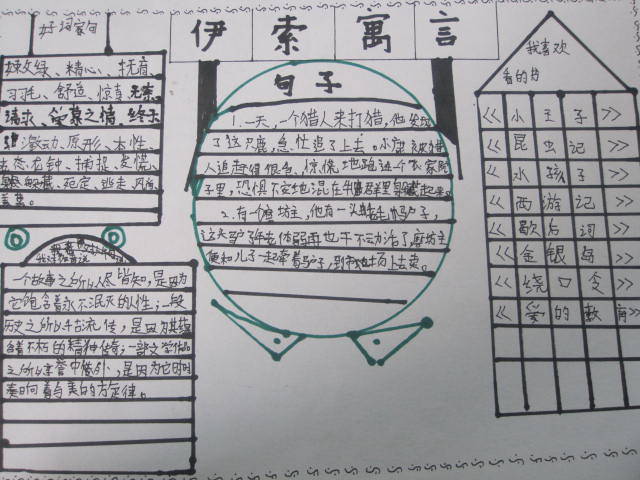 伊索寓言
好词家句
精心、抚育、
羽毛、舒适、惊喜
请求、爱慕之情、
激动、原形、本性、
老态龙钟、捕捉、
躲藏、死定、逃走、
句子
1.一天，一个猎人来打猎，他发现
了这只鹿，急忙追了上去。小鹿被猎
人追赶得很急，惊慌地跑进个农家院
子里，恐惧不安地混在牛群里躲藏起来。
2.有个磨坊主，他有一头
这头驴了年老体弱再也干不动活了磨坊主
便和儿子一起牵着驴子，到市场上去卖。
一个故事之所以人尽皆知，是因为
它饱含着永不泯灭的人性；一段
历史之所以千古流传，是因为其蕴
含着不朽的精神传奇；一部文学作品
之所以享誉中外，是因为它的时
奏响着与美的方定律。
我喜欢
看的书
《小王子》
《昆虫记》
《水孩子》
《西游记》
《歇后词》
《金银岛》
《绕口令》
《爱的教育》